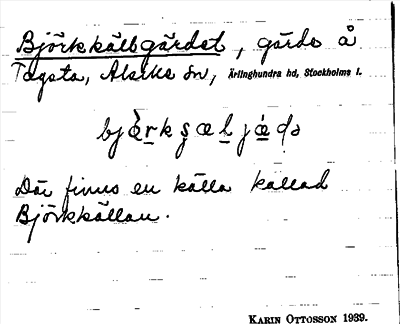 Björkkällsgärdet, gärde å
Tagsta, Alsike sn, Ärlinghundra hd, Stockholms l.
Där finns en källa kallad
Björkkällan.
KARIN OTTOSSON 1939.